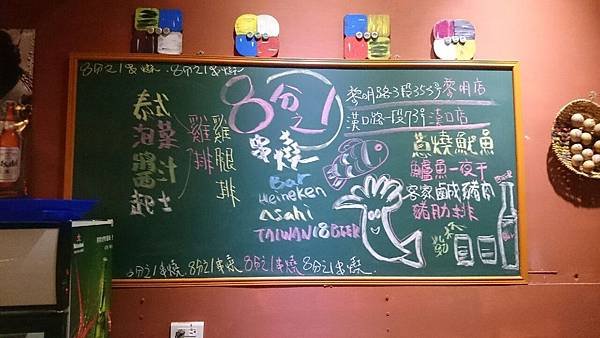 8分之1串燒.8分之1串燒
泰式
泡菜
醬汁
起士
雞排
雞腿排
8分之1
串燒
Bar
Heineken
Asahi
TAIWAN 18 BEER
黎明路3段353號 黎明店
漢口路一段73號 漢口店
蔥燒魷魚
鱸魚一夜干
客家鹹豬肉
豬肋排
8分之1串燒.8分之1串燒 8分之1串燒 8分之1串燒.